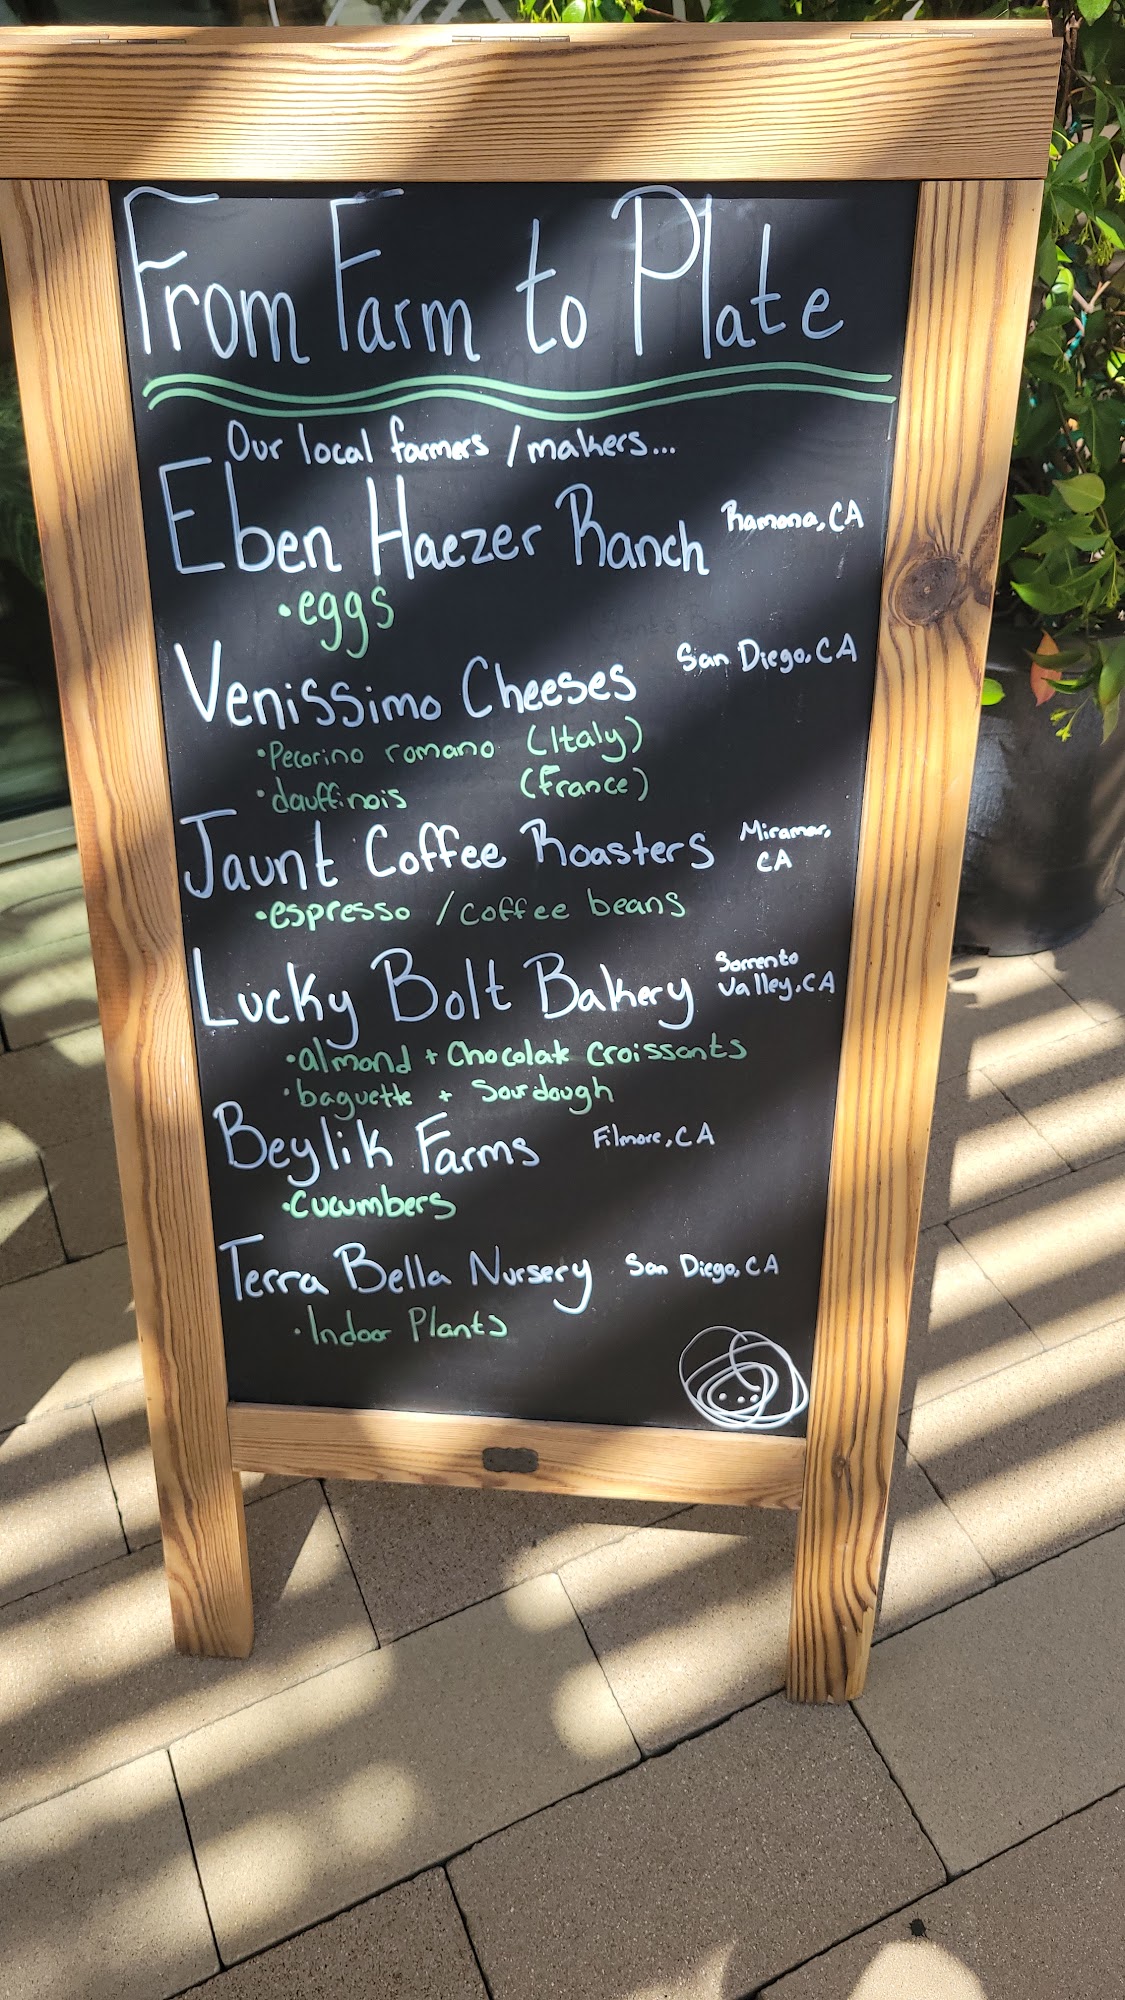 From Farm to Plate
Our local farmers / makers...
Eben Haezer Ranch Ramona, CA
• eggs
Venissimo Cheeses San Diego, CA
• Pecorino romano (Italy)
• dauffinois (France)
Jaunt Coffee Roasters Miramar, CA
• espresso / coffee beans
Lucky Bolt Bakery Sorrento Valley, CA
• almond + Chocolate Croissants
• baguette + Sourdough
Beylik Farms Filmore, CA
• Cucumbers
Terra Bella Nursery San Diego, CA
• Indoor Plants